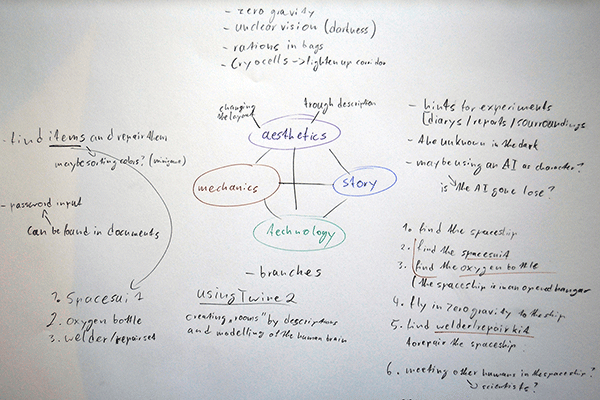 - zero gravity
- unclear vision (darkness)
- rations in bags
- Cryocells -> lighten up corridor
changing the layout
trough description
aesthetics
mechanics
story
technology
- find items and repair them
maybe sorting colors? (minigame)
- password input
can be found in documents
1. Spacesuit
2. oxygen bottle
3. welder/repairset
- branches
using Twine 2
creating "rooms" by descriptions
and modelling of the human brain
- hints for experiments
(diarys/reports/sourroundings
- the unknown in the dark
- maybe using an AI as character?
is the AI gone lose?
1. find the spaceship
2. find the spacesuit
3. find the oxygen bottle
(the spaceship is in an opened hangar
4. fly in zero gravity to the ship
5. find welder/repair kit
to repair the spaceship
6. meeting other humans in the spaceship?
scientists?